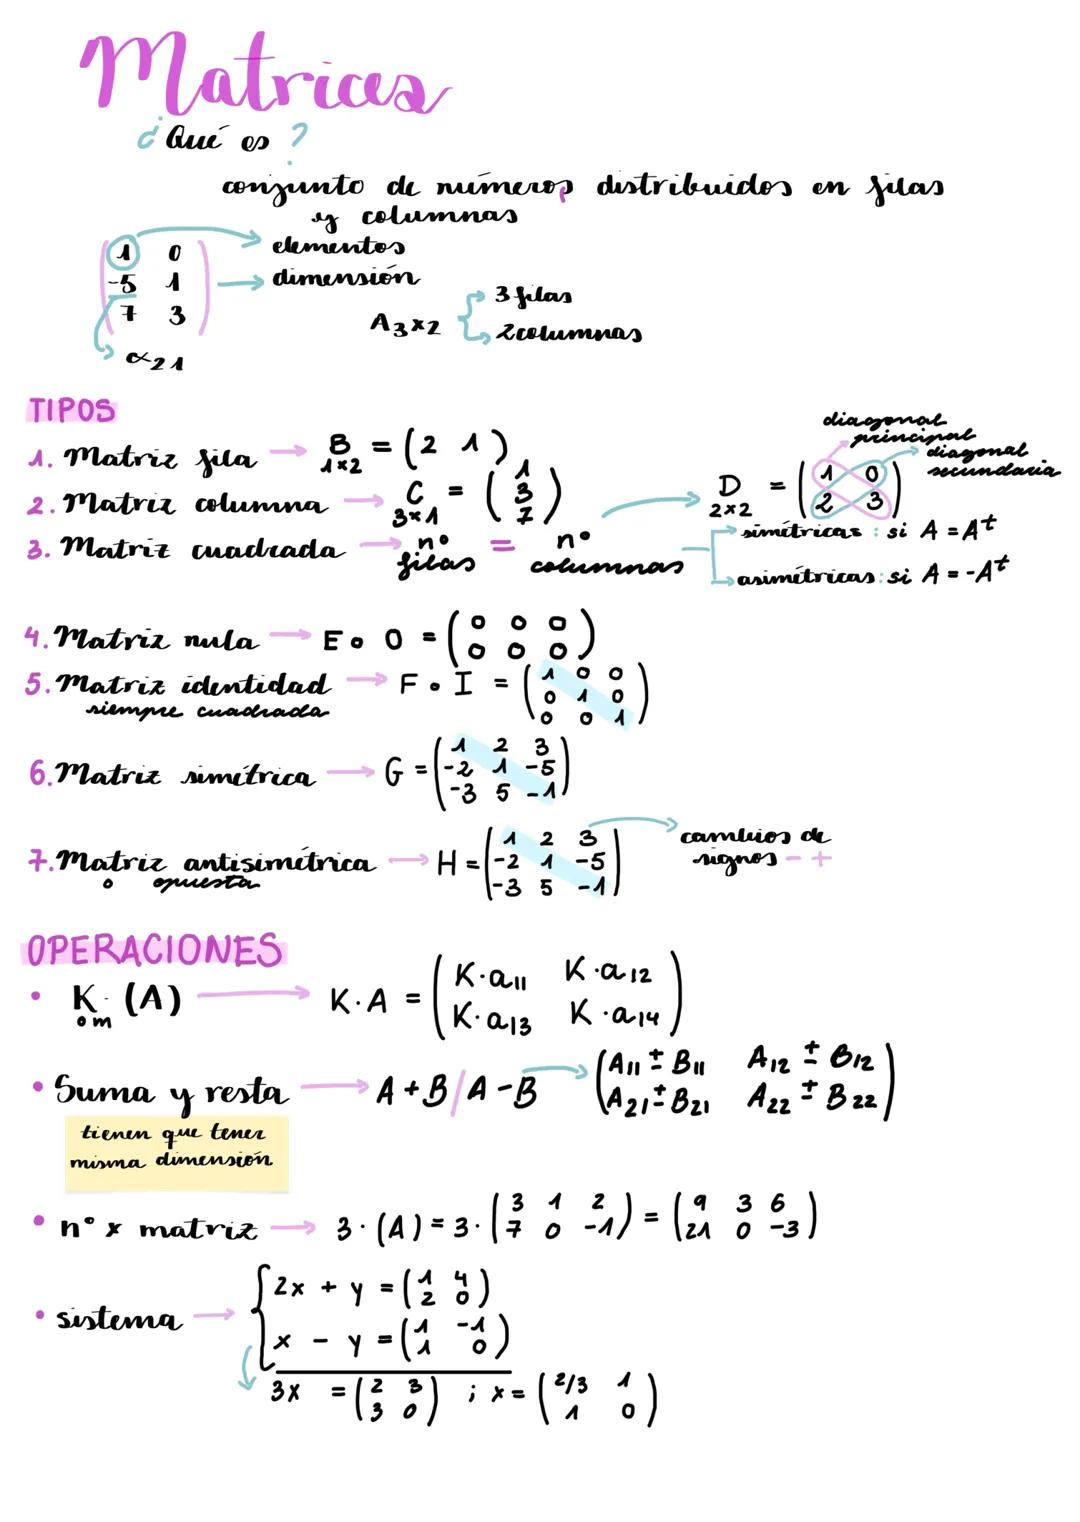 Matrices
¿Qué es?
conjunto de números distribuidos en filas
y columnas
(1 0
-5 1
7 3)
elementos
dimensión
A3x2
3 filas
2 columnas
α21
TIPOS
1. Matriz fila → B 1x2 = (2 1)
2. Matriz columna → C 3x1 = (1 3 7)
3. Matriz cuadrada → nº filas = nº columnas
D 2x2 = (1 0
2 3)
diagonal principal
diagonal secundaria
simétricas: si A = A^t
asimétricas: si A = -A^t
4. Matriz nula → E o O = (0 0 0
0 0 0)
5. Matriz identidad → F o I = (1 0 0
siempre cuadrada
0 1 0
0 0 1)
6. Matriz simétrica → G = (1 2 3
-2 1 -5
-3 5 -1)
7. Matriz antisimétrica → H = (1 2 3
o opuesta
-2 1 -5
-3 5 -1)
cambios de
signos - +
OPERACIONES
• K·(A) → K·A = (K·a11 K·a12
o m
K·a13 K·a14)
• Suma y resta → A+B/A-B → (A11±B11 A12±B12
A21±B21 A22±B22)
tienen que tener
misma dimensión
• nº x matriz → 3·(A) = 3·(3 1 2
7 0 -1) = (9 3 6
21 0 -3)
• sistema → {2x + y = (1 4
2 0)
x - y = (1 -1
1 0)
3x = (2 3
3 0) ; x = (2/3 1
1 0)